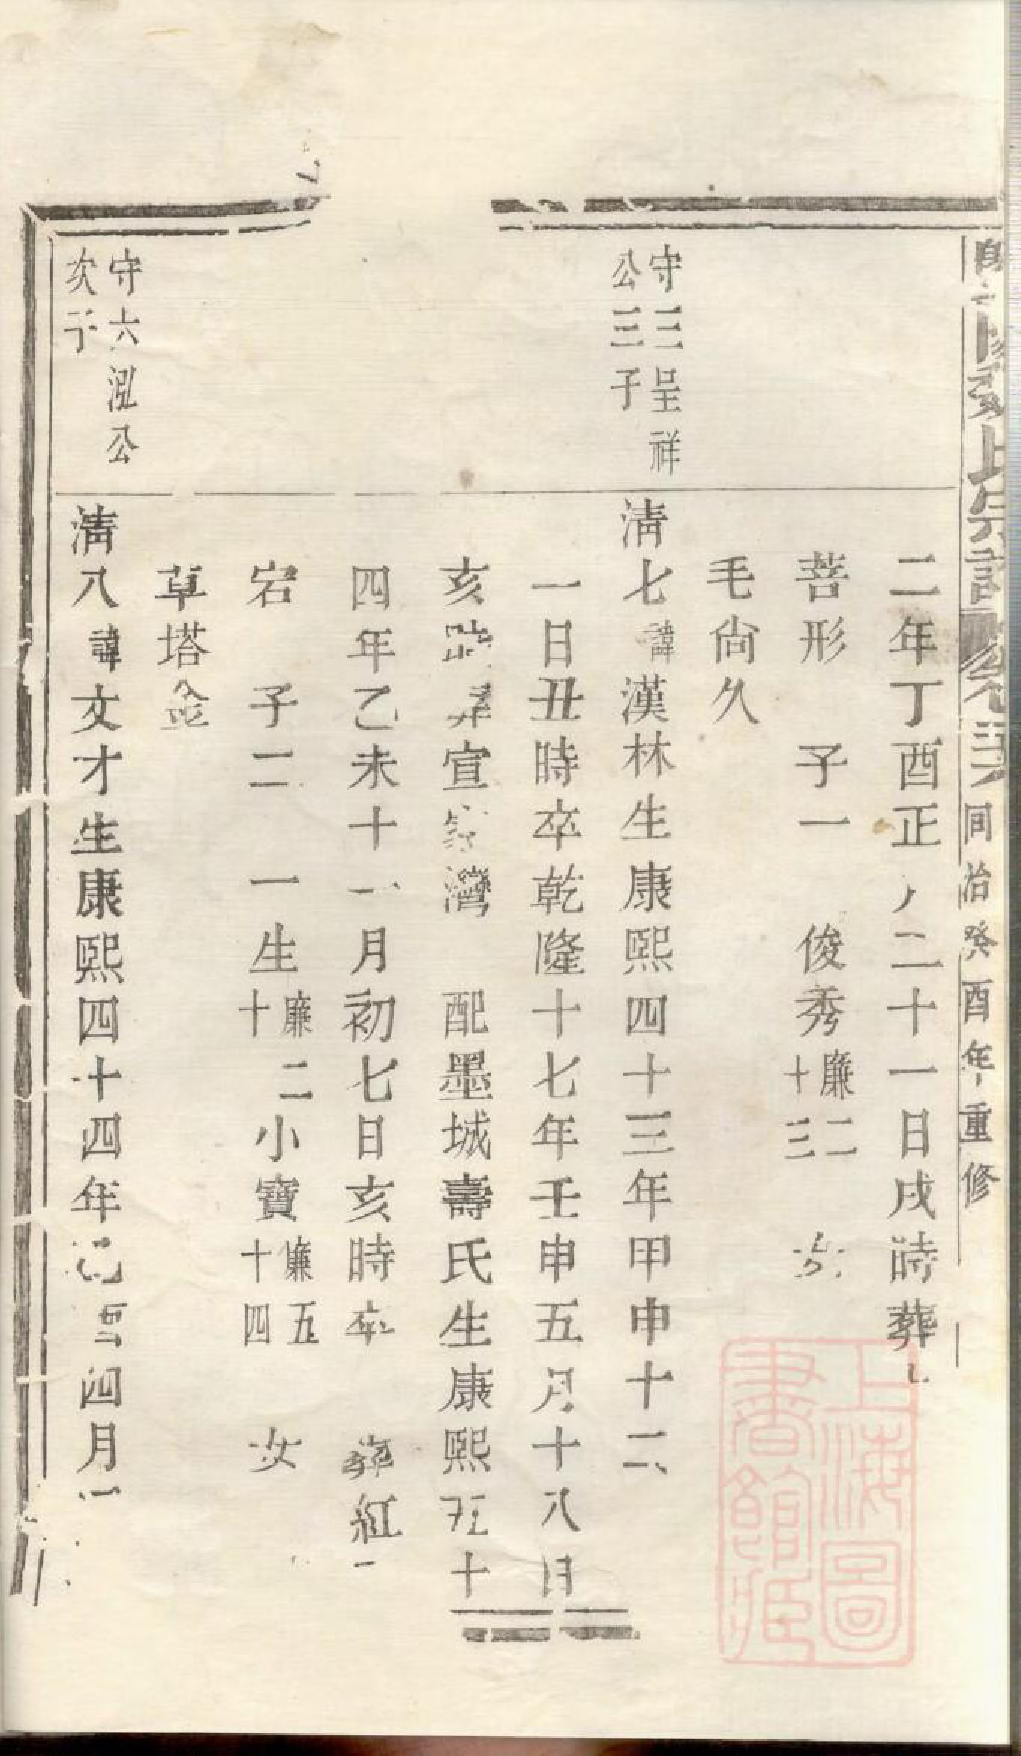 氏宗譜
同治癸酉年重修
二年丁酉正 二十一日戌時葬
菩形 子一 俊秀廉二十三
毛尙久
守三呈祥
公三子
清七諱漢林生康熙四十三年甲申十二
一日丑時卒乾隆十七年壬申五月十八日
亥 葬宣家灣 配墨城壽氏生康熙五十
四年乙未十一月初七日亥時卒 葬紅
宕 子二 一生廉二十 小寶廉五十四 女
草塔金
守六泓公
次子
清八諱文才生康熙四十四年 酉四月
上海圖書館藏